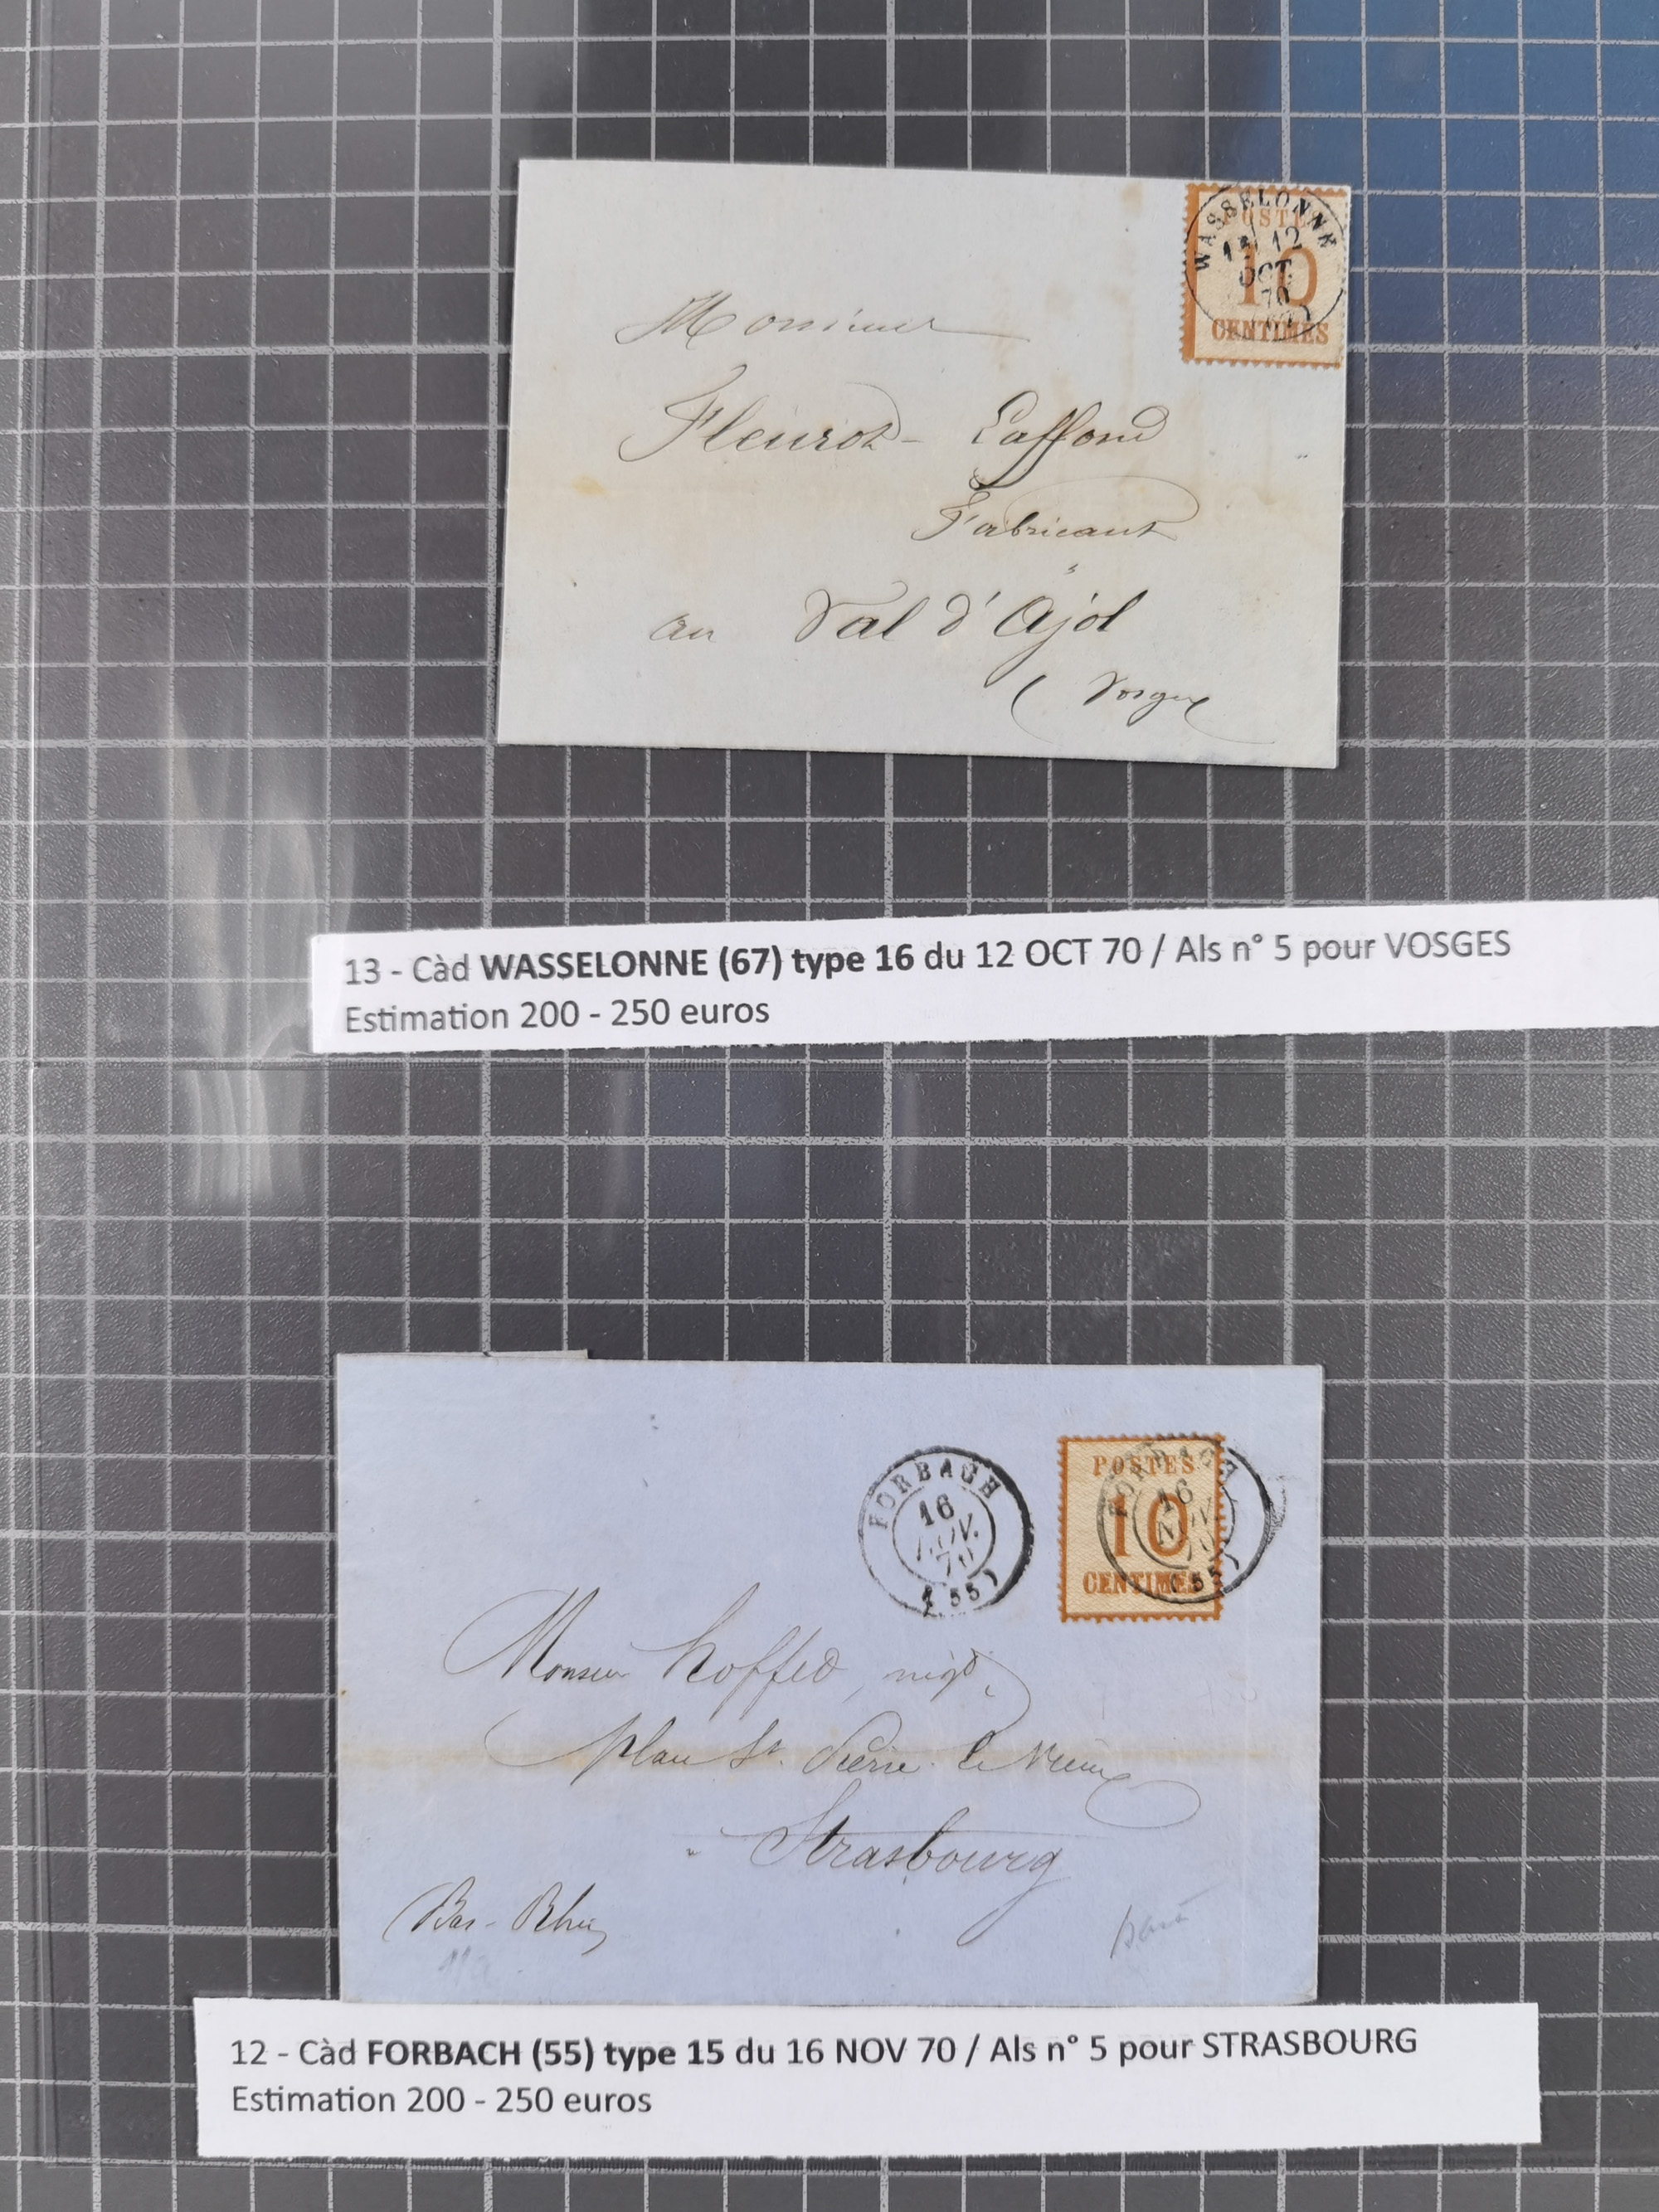 WASSELONNE
12
OCT.
70
POSTES
10
CENTIMES
Monsieur
Fleurot - Laffond
Fabricant
au Val d'Ajol
(Vosges
13 - Càd WASSELONNE (67) type 16 du 12 OCT 70 / Als n° 5 pour VOSGES
Estimation 200 - 250 euros
FORBACH
16
NOV.
70
(55)
POSTES
10
CENTIMES
FORBACH
16
NOV.
70
(55)
Monsieur hoffed, négt.
place St. Pierre le Vieux
Strasbourg
(Bas-Rhin)
12 - Càd FORBACH (55) type 15 du 16 NOV 70 / Als n° 5 pour STRASBOURG
Estimation 200 - 250 euros